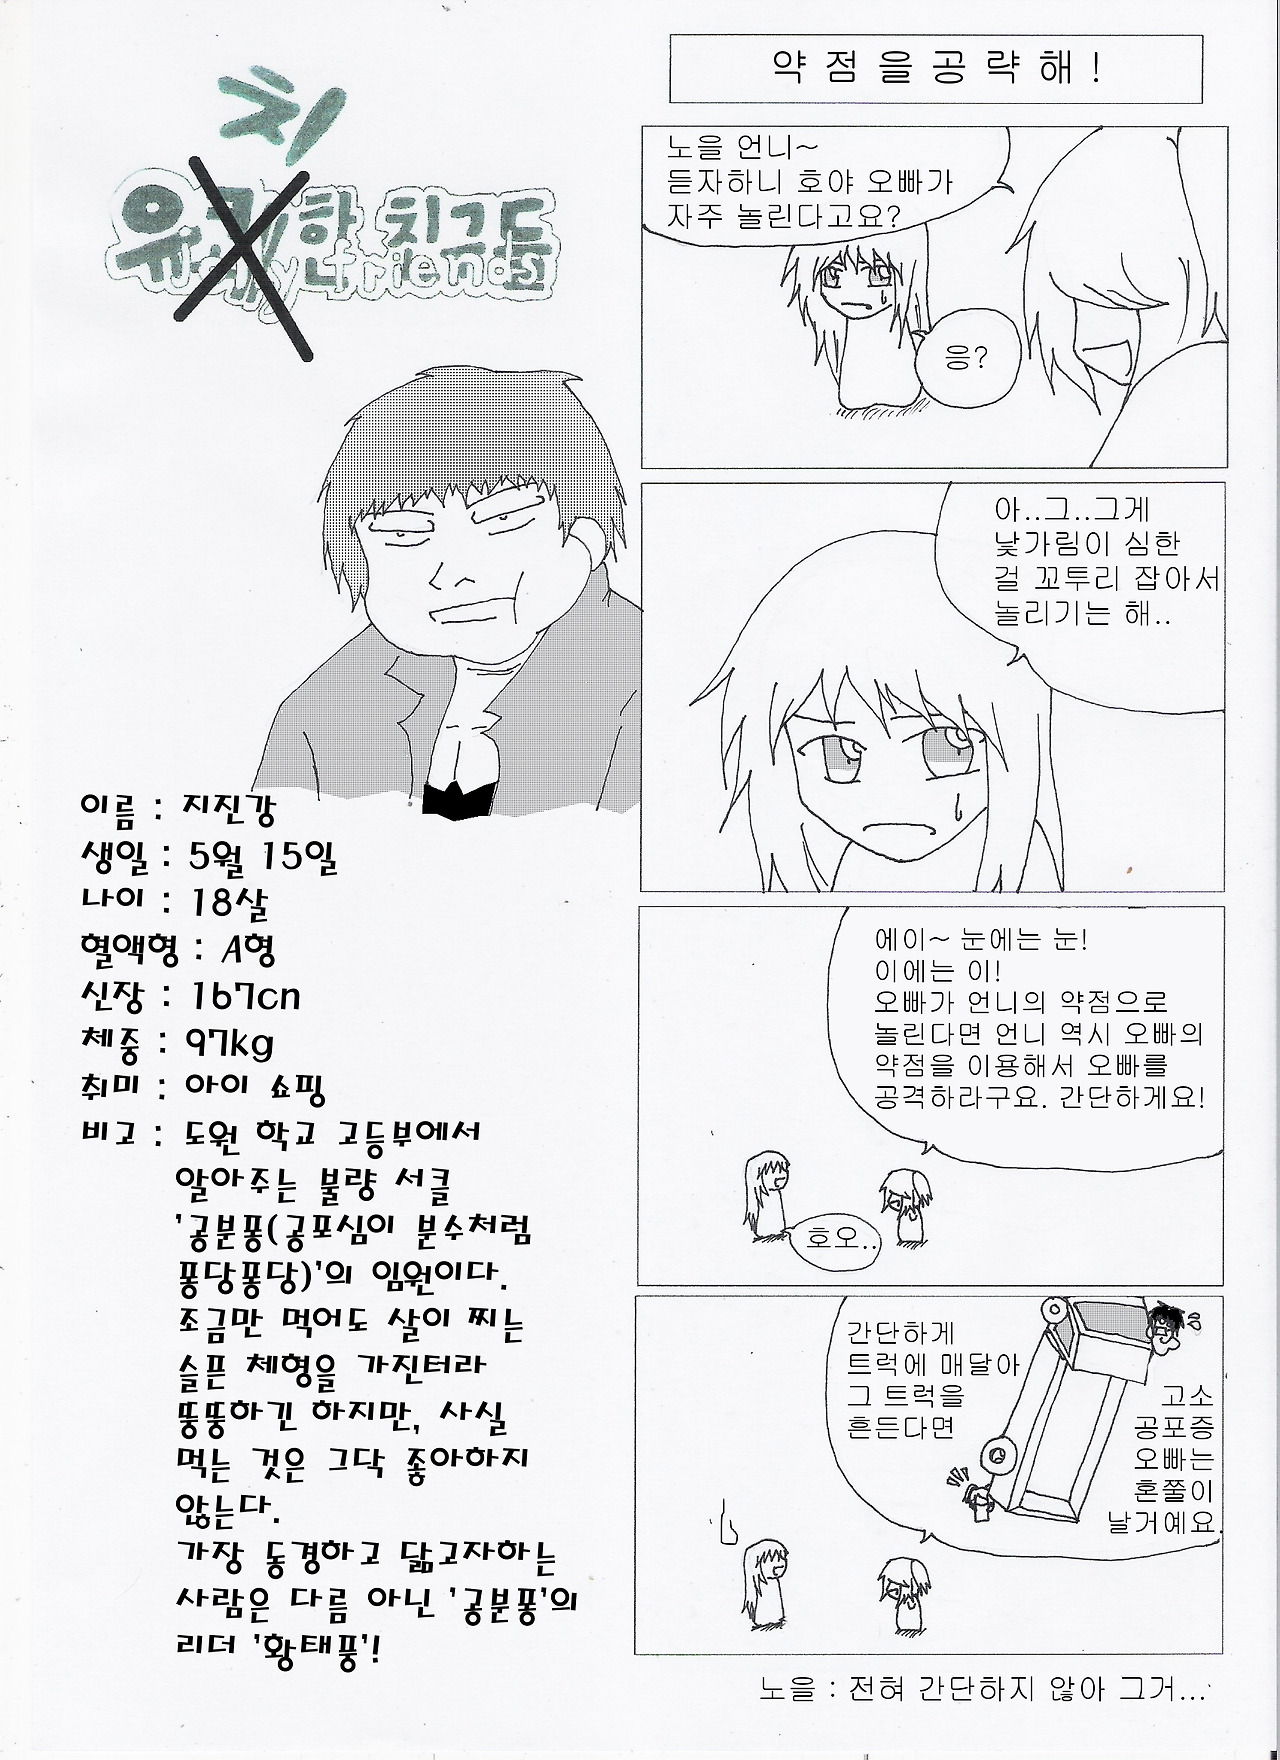 치
유쾌한 친구들
friends
이름 : 지진강
생일 : 5월 15일
나이 : 18살
혈액형 : A형
신장 : 167cn
체중 : 97kg
취미 : 아이 쇼핑
비고 : 도원 학교 고등부에서
알아주는 불량 서클
'공분퐁(공포심이 분수처럼
퐁당퐁당)'의 임원이다.
조금만 먹어도 살이 찌는
슬픈 체형을 가진터라
뚱뚱하긴 하지만, 사실
먹는 것은 그닥 좋아하지
않는다.
가장 동경하고 닮고자하는
사람은 다름 아닌 '공분퐁'의
리더 '황태풍'!
약점을공략해!
노을 언니~
듣자하니 호야 오빠가
자주 놀린다고요?
응?
아..그..그게
낯가림이 심한
걸 꼬투리 잡아서
놀리기는 해..
에이~ 눈에는 눈!
이에는 이!
오빠가 언니의 약점으로
놀린다면 언니 역시 오빠의
약점을 이용해서 오빠를
공격하라구요. 간단하게요!
호오..
간단하게
트럭에 매달아
그 트럭을
흔든다면
고소
공포증
오빠는
혼쭐이
날거예요.
노을 : 전혀 간단하지 않아 그거...